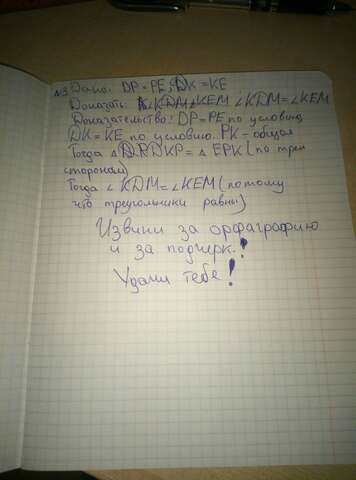 №3 Дано: DP=PE; DK=KE
Доказать: ∠KDM=∠KEM ∠KDM=∠KEM
Доказательство: DP=PE по условию
DK=KE по условию. PK-общая
Тогда △DKP=△EPK (по трем
сторонам)
Тогда ∠KDM=∠KEM (потому
что треугольники равны)
Извини за орфаграфию
и за подчерк!
Удачи тебе!